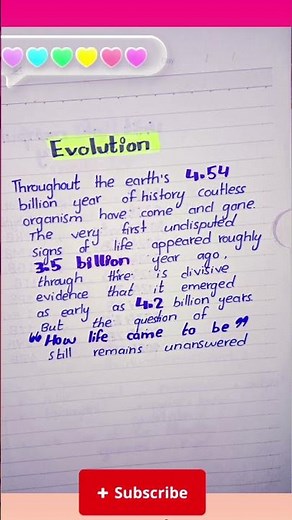 Evolution
Throughout the earth's 4.54
billion year of history coutless
organism have come and gone.
The very first undisputed
signs of life appeared roughly
3.5 billion year ago,
through thire is divisive
evidence that it emerged
as early as 4.2 billion years.
But the question of
“How life came to be”
still remains unanswered
+ Subscribe